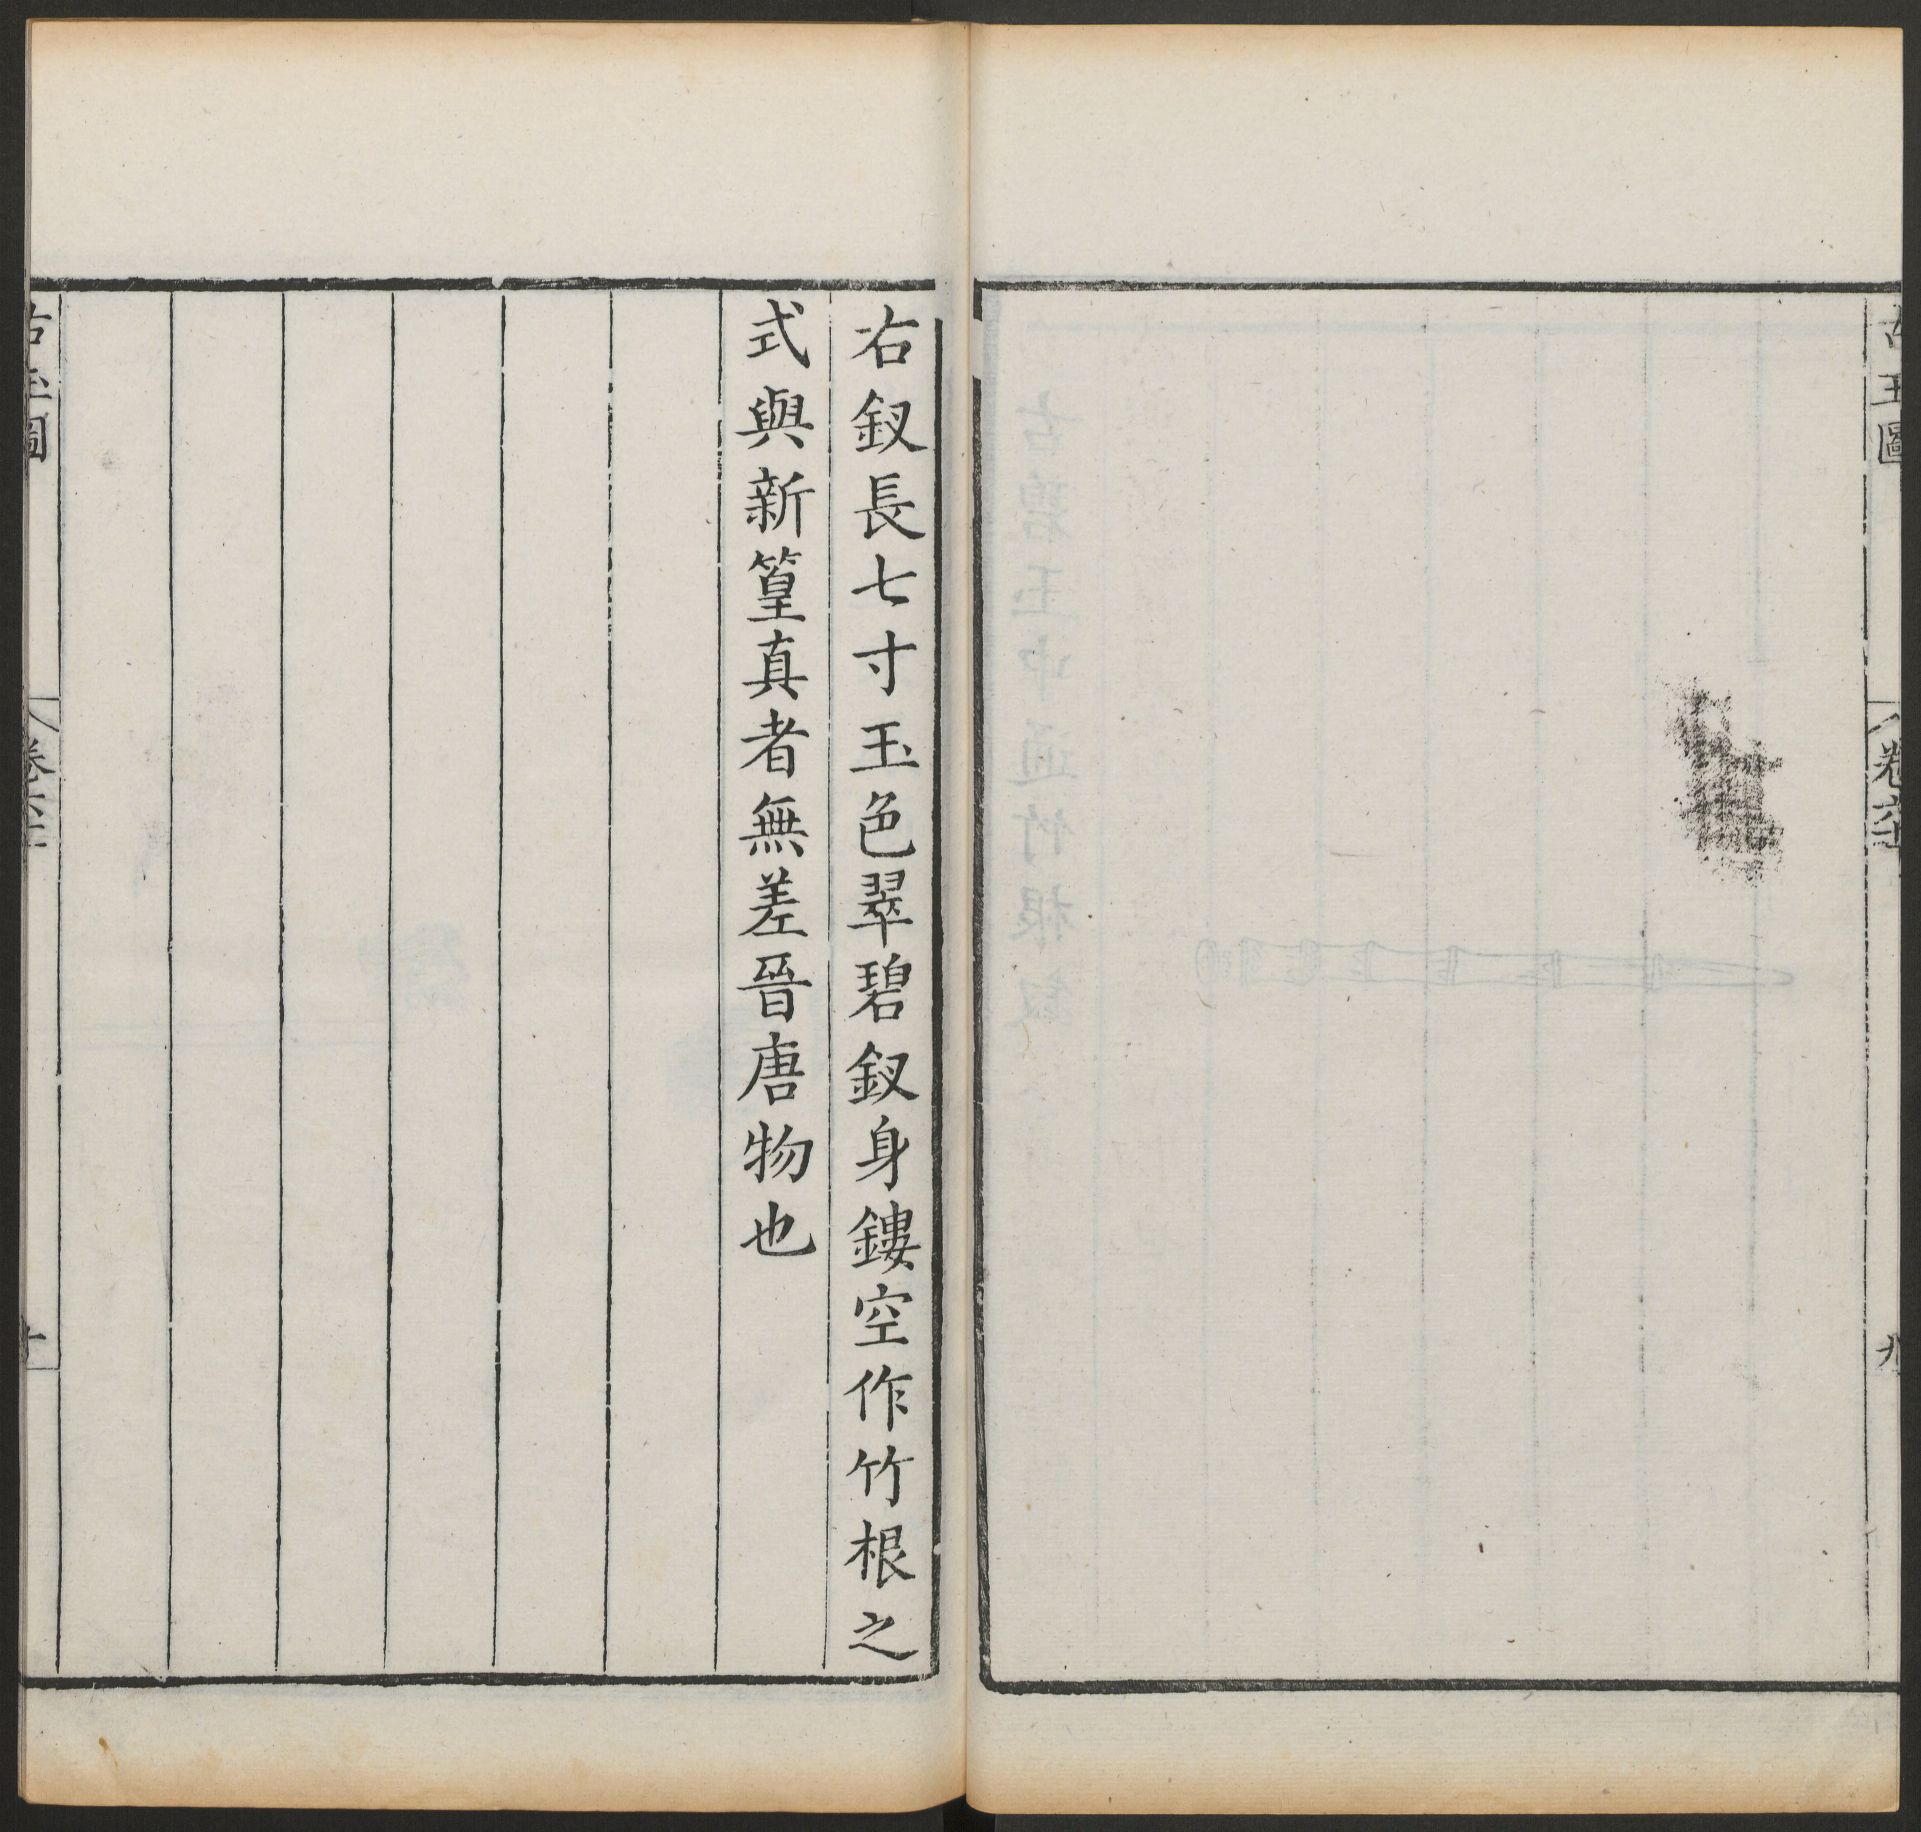 古玉圖
卷六十
九
右釵長七寸玉色翠碧釵身鏤空作竹根之
式與新篁真者無差晉唐物也
古玉圖
卷六十
十